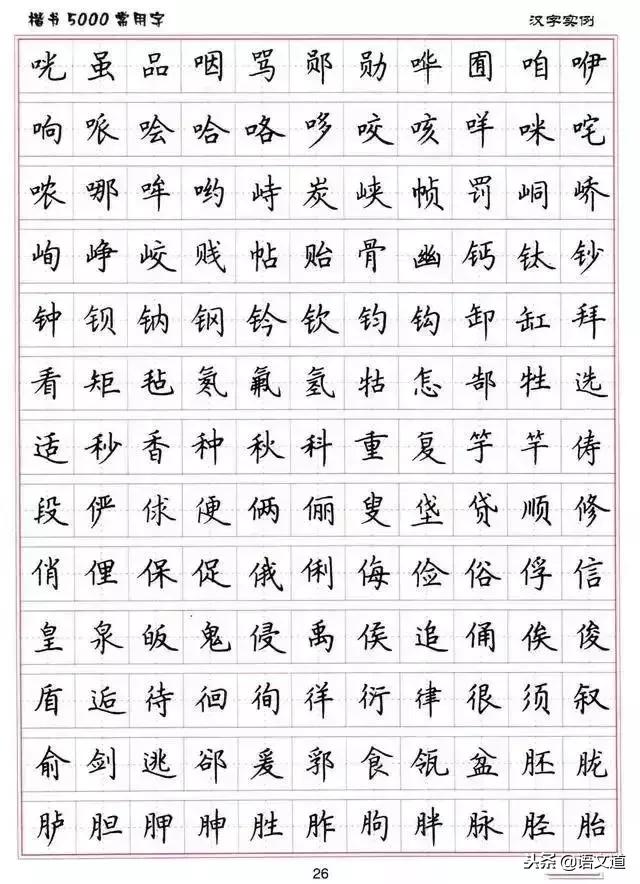 楷书5000常用字 汉字实例
咣 虽 品 咽 骂 郧 勋 哗 囿 咱 咿
响 哌 哙 哈 咯 哆 咬 咳 咩 咪 咤
哝 哪 哞 哟 峙 炭 峡 帧 罚 峒 峤
峋 峥 峧 贱 帖 贻 骨 幽 钙 钛 钞
钟 钡 钠 钢 钤 钦 钧 钩 卸 缸 拜
看 矩 毡 氡 氟 氢 牯 怎 郜 牲 选
适 秒 香 种 秋 科 重 复 竽 竿 俦
段 俨 俅 便 俩 俪 叟 垡 贷 顺 修
俏 俚 保 促 俄 俐 侮 俭 俗 俘 信
皇 泉 皈 鬼 侵 禹 侯 追 俑 俟 俊
盾 逅 待 徊 徇 徉 衍 律 很 须 叙
俞 剑 逃 郤 爰 郛 食 瓴 盆 胚 胧
胪 胆 胛 胂 胜 胙 朐 胖 脉 胫 胎
26
头条@语文道